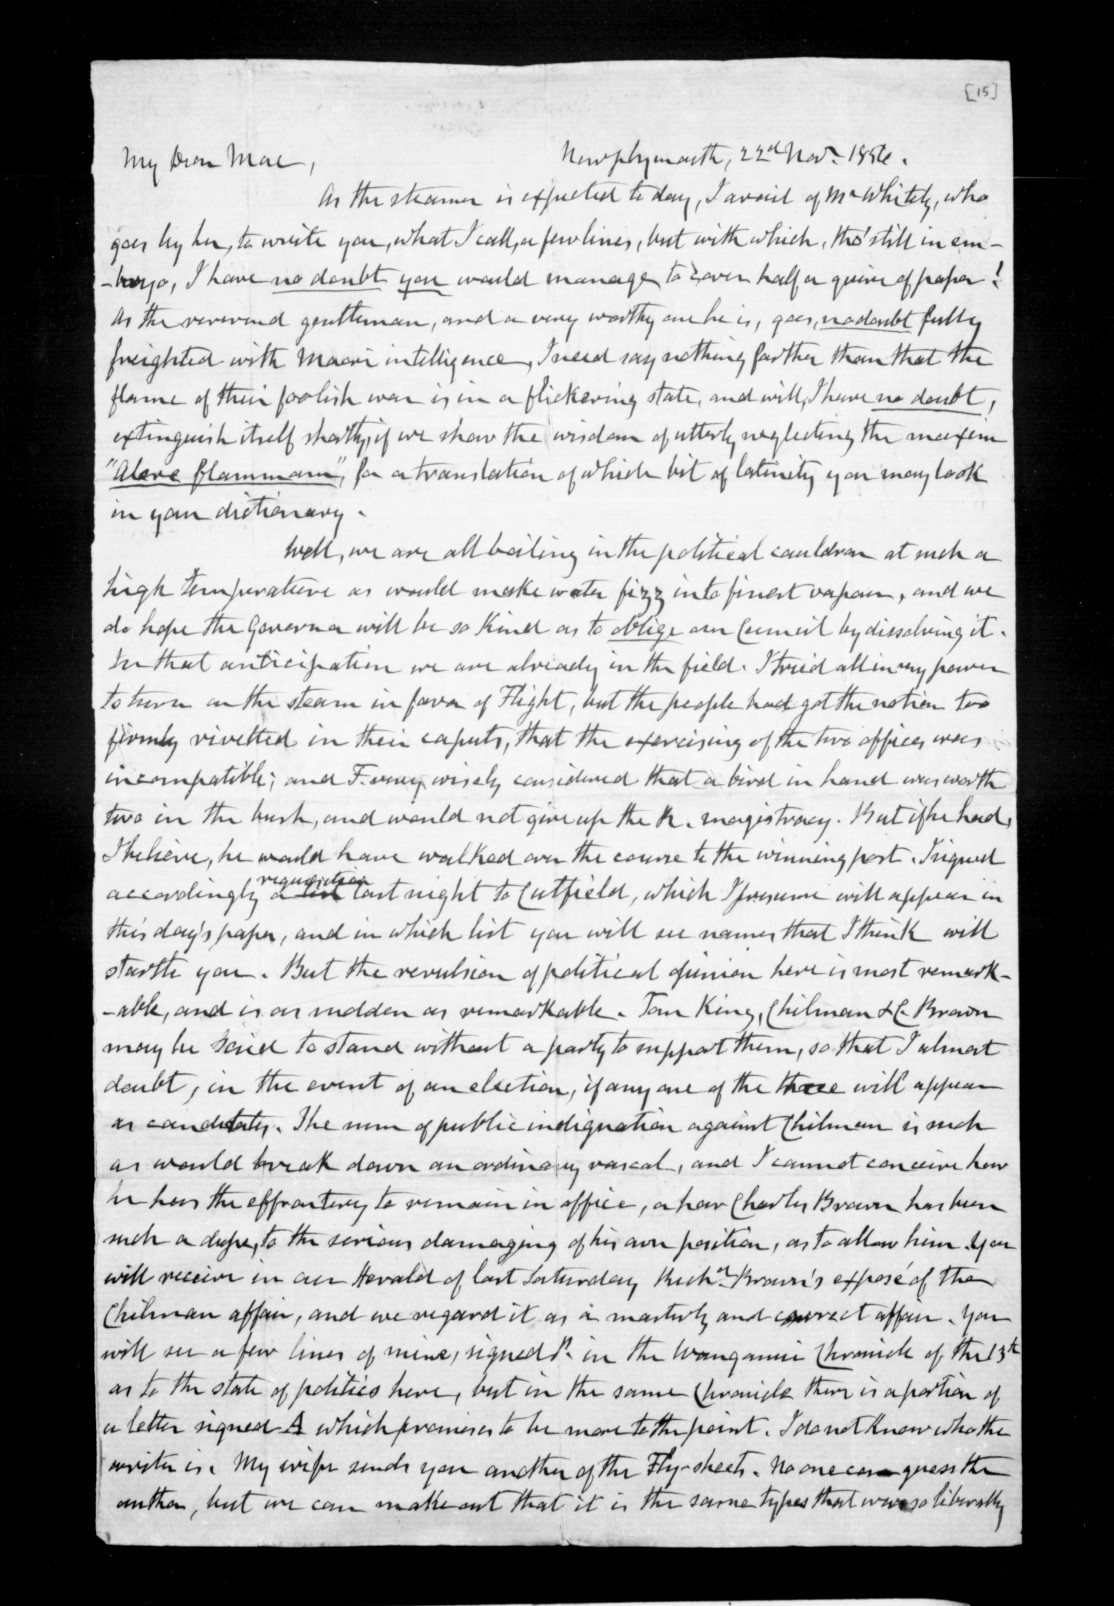 [15]
My Dear Mac,
Newplymouth, 22d Novr. 1856.
As the steamer is expected to day, I avail of Mr Whitely, who
goes by her, to write you, what I call, a few lines, but with which, tho' still in em-
-bryo, I have no doubt you would manage to cover half a quire of paper!
As the reverend gentleman, and a very worthy one he is, goes, no doubt fully
freighted with Maori intelligence, I need say nothing further than that the
flame of their foolish war is in a flickering state, and will, I have no doubt,
extinguish itself shortly, if we show the wisdom of utterly neglecting the maxim
"Alere flammam", for a translation of which bit of latinity you may look
in your dictionary.
Well, we are all boiling in the political cauldron at such a
high temperature as would make water fizz into finest vapour, and we
do hope the Governor will be so kind as to oblige our Council by dissolving it.
In that anticipation we are already in the field. I tried all in my power
to turn on the steam in favor of Flight, but the people had got the notion too
firmly rivetted in their caputs, that the exercising of the two offices was
incompatible; and F. very wisely considered that a bird in hand was worth
two in the bush, and would not give up the R. magistracy. But if he had,
I believe, he would have walked over the course to the winning post. I signed
accordingly a requisition last night to Cutfield, which I presume will appear in
this day's paper, and in which list you will see names that I think will
startle you. But the revulsion of political opinion here is most remark-
-able, and is as sudden as remarkable. Tom King, Chilman & C. Brown
may be said to stand without a party to support them, so that I almost
doubt, in the event of an election, if any one of the three will appear
as candidates. The sum of public indignation against Chilman is such
as would break down an ordinary rascal, and I cannot conceive how
he has the effrontery to remain in office, or how Charles Brown has been
such a dupe, to the serious damaging of his own position, as to allow him. You
will receive in our Herald of last Saturday Richd. Brown's exposé of the
Chilman affair, and we regard it as a masterly and correct affair. You
will see a few lines of mine, signed P. in the Wanganui Chronicle of the 13th
as to the state of politics here, but in the same Chronicle there is a portion of
a letter signed A which promises to be more to the point. I do not know who the
writer is. My wife sends you another of the Fly-sheets. No one can guess the
author, but we can make out that it is the same types that were so liberally